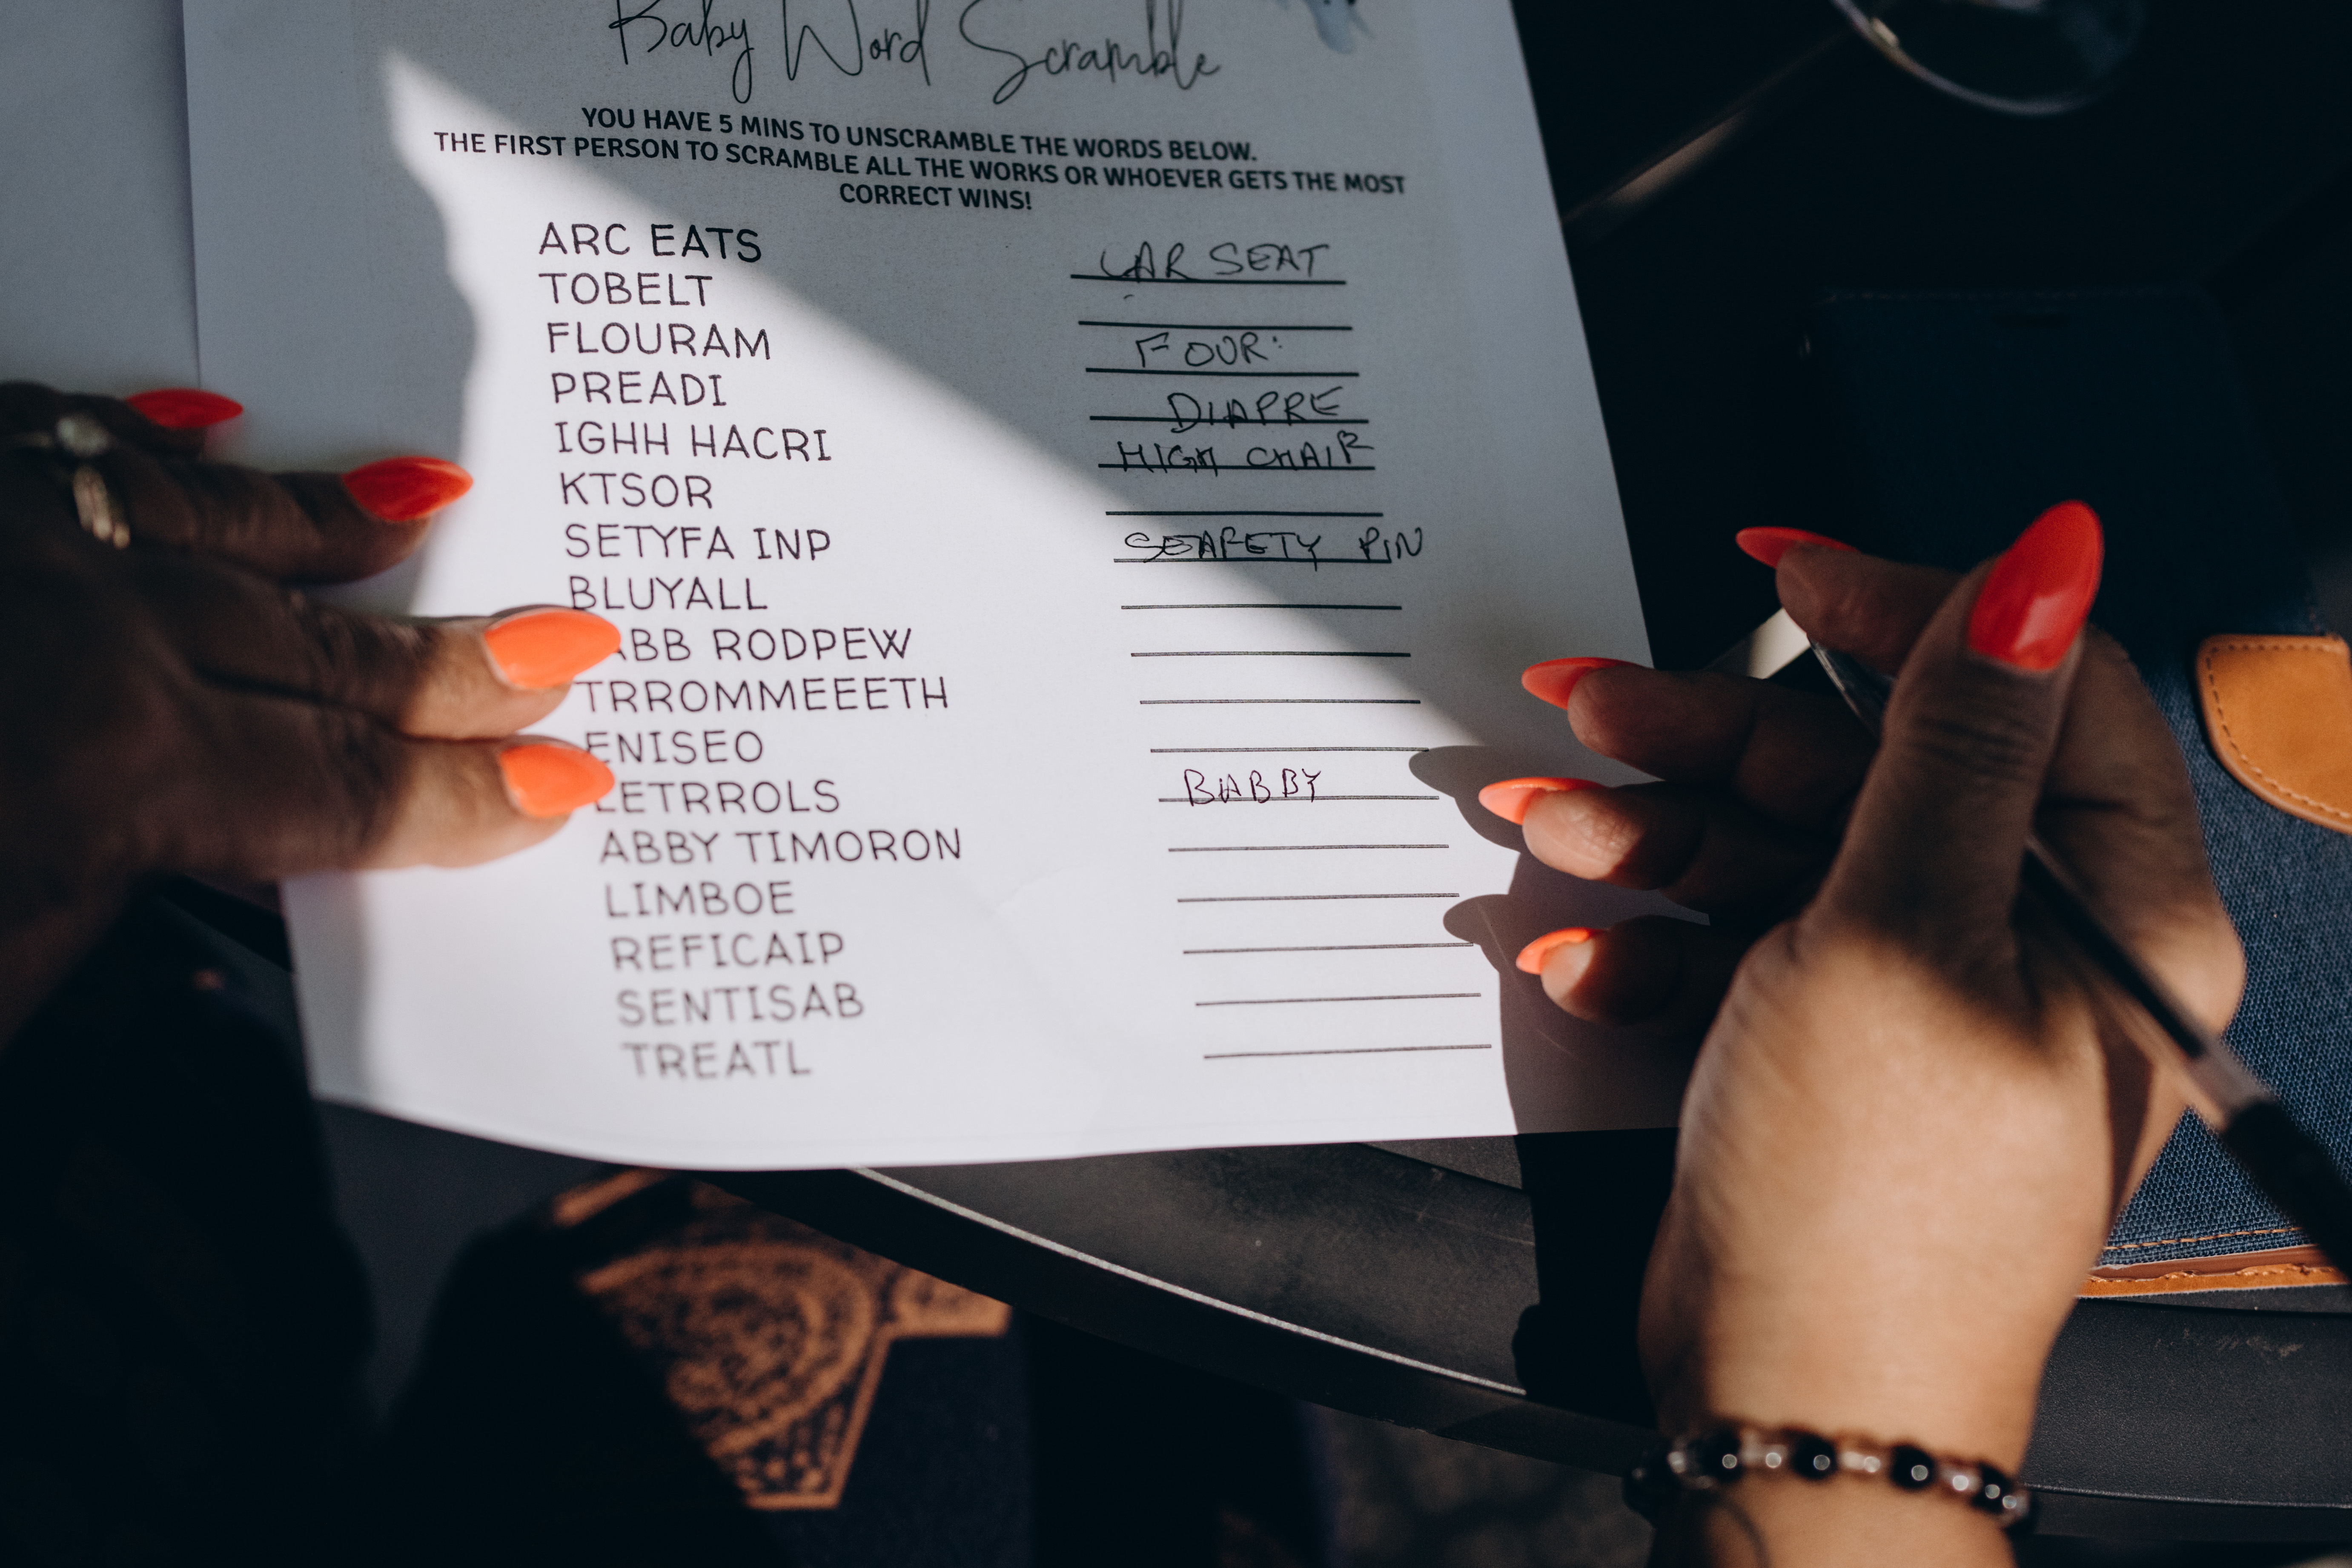 Baby Word Scramble
YOU HAVE 5 MINS TO UNSCRAMBLE THE WORDS BELOW.
THE FIRST PERSON TO SCRAMBLE ALL THE WORKS OR WHOEVER GETS THE MOST
CORRECT WINS!
ARC EATS CAR SEAT
TOBELT
FLOURAM FOUR
PREADI DIAPRE
IGHH HACRI HIGH CHAIR
KTSOR
SETYFA INP SEAFETY PIN
BLUYALL
ABB RODPEW
TRROMMEEETH
ENISEO
LETRROLS BABBY
ABBY TIMORON
LIMBOE
REFICAIP
SENTISAB
TREATL